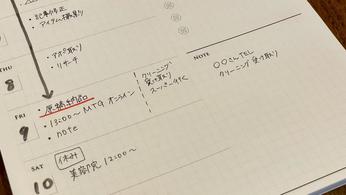 ・記事修正
・アイテム撮影
THU
8
・アポ取り
・リサーチ
FRI
9
・原稿納品
・13:00〜MTG オンライン
・note
クリーニング
受け取り
スーパー行く
SAT
10
休み
美容院 12:00〜
NOTE
○○さんTEL
クリーニング受け取り